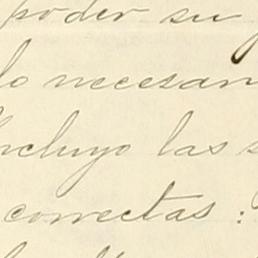 poder su
lo necesan
ncluyo las s
correctas: